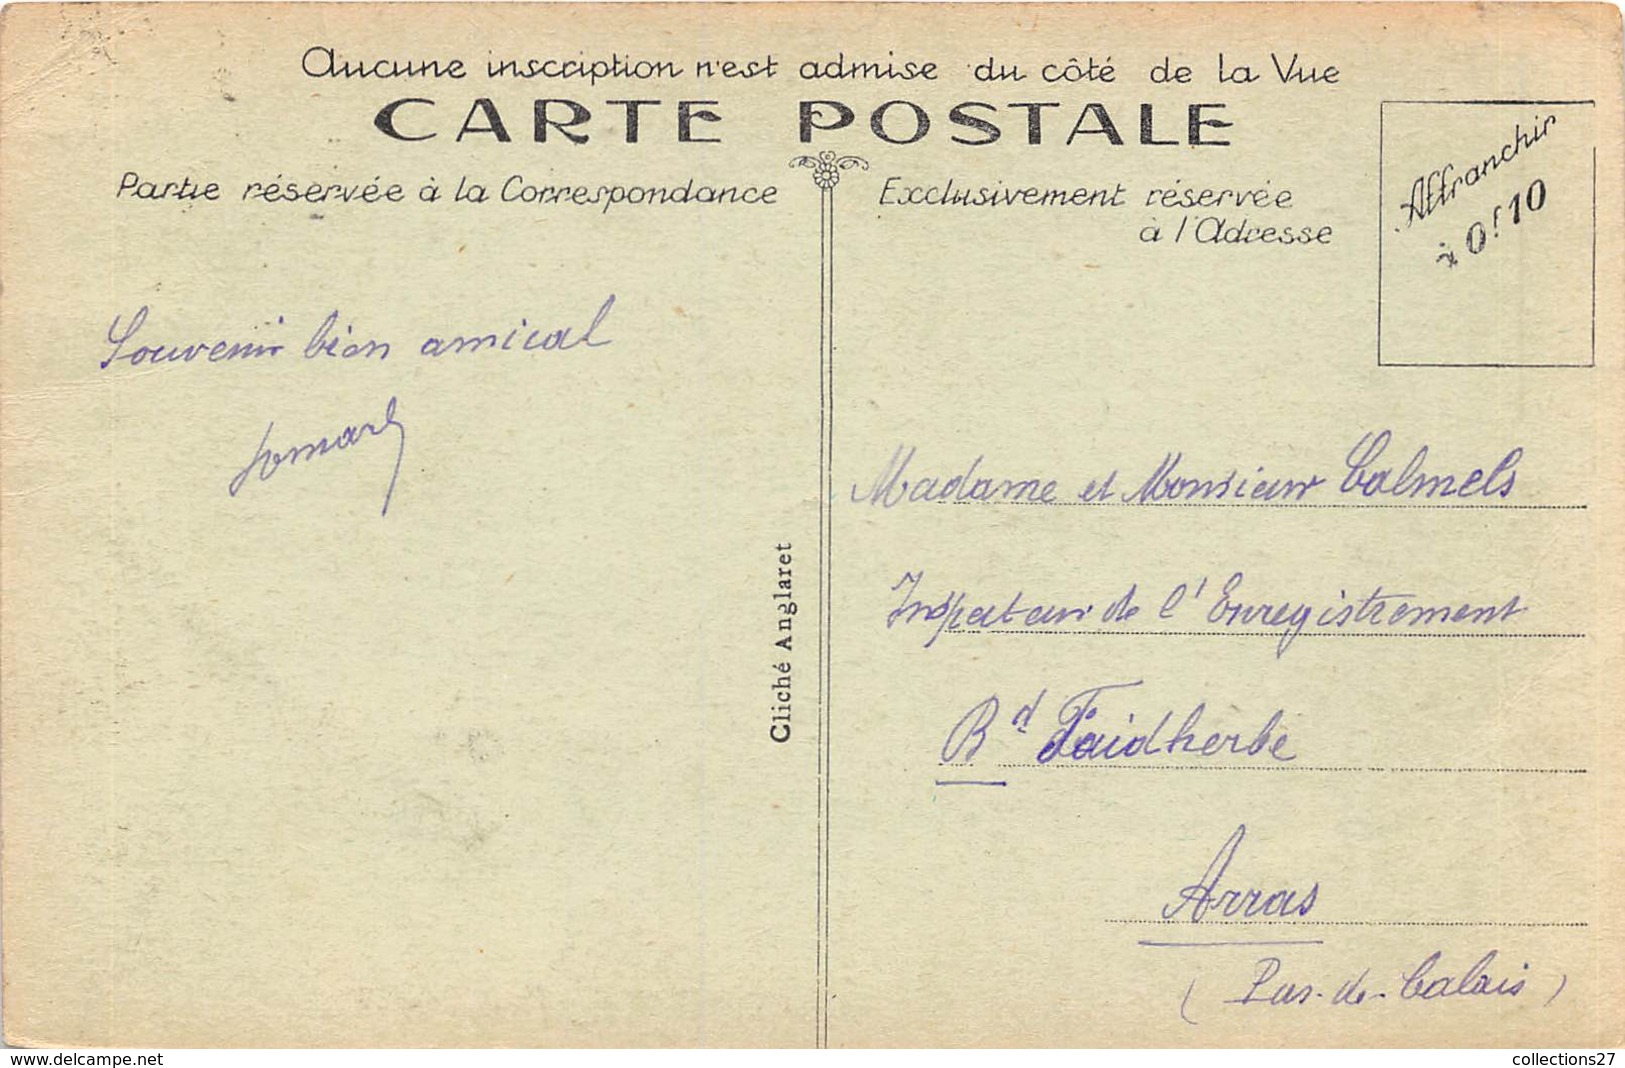 Aucune inscription n'est admise du côté de la Vue
CARTE POSTALE
Partie réservée à la Correspondance
Exclusivement réservée
à l'Adresse
Affranchir
à 0f10
Souvenir bien amical
Cliché Anglaret
Madame et Monsieur Calmels
Inspecteur de l'Enregistrement
Bd Faidherbe
Arras
(Pas-de-Calais)
www.delcampe.net
collections27